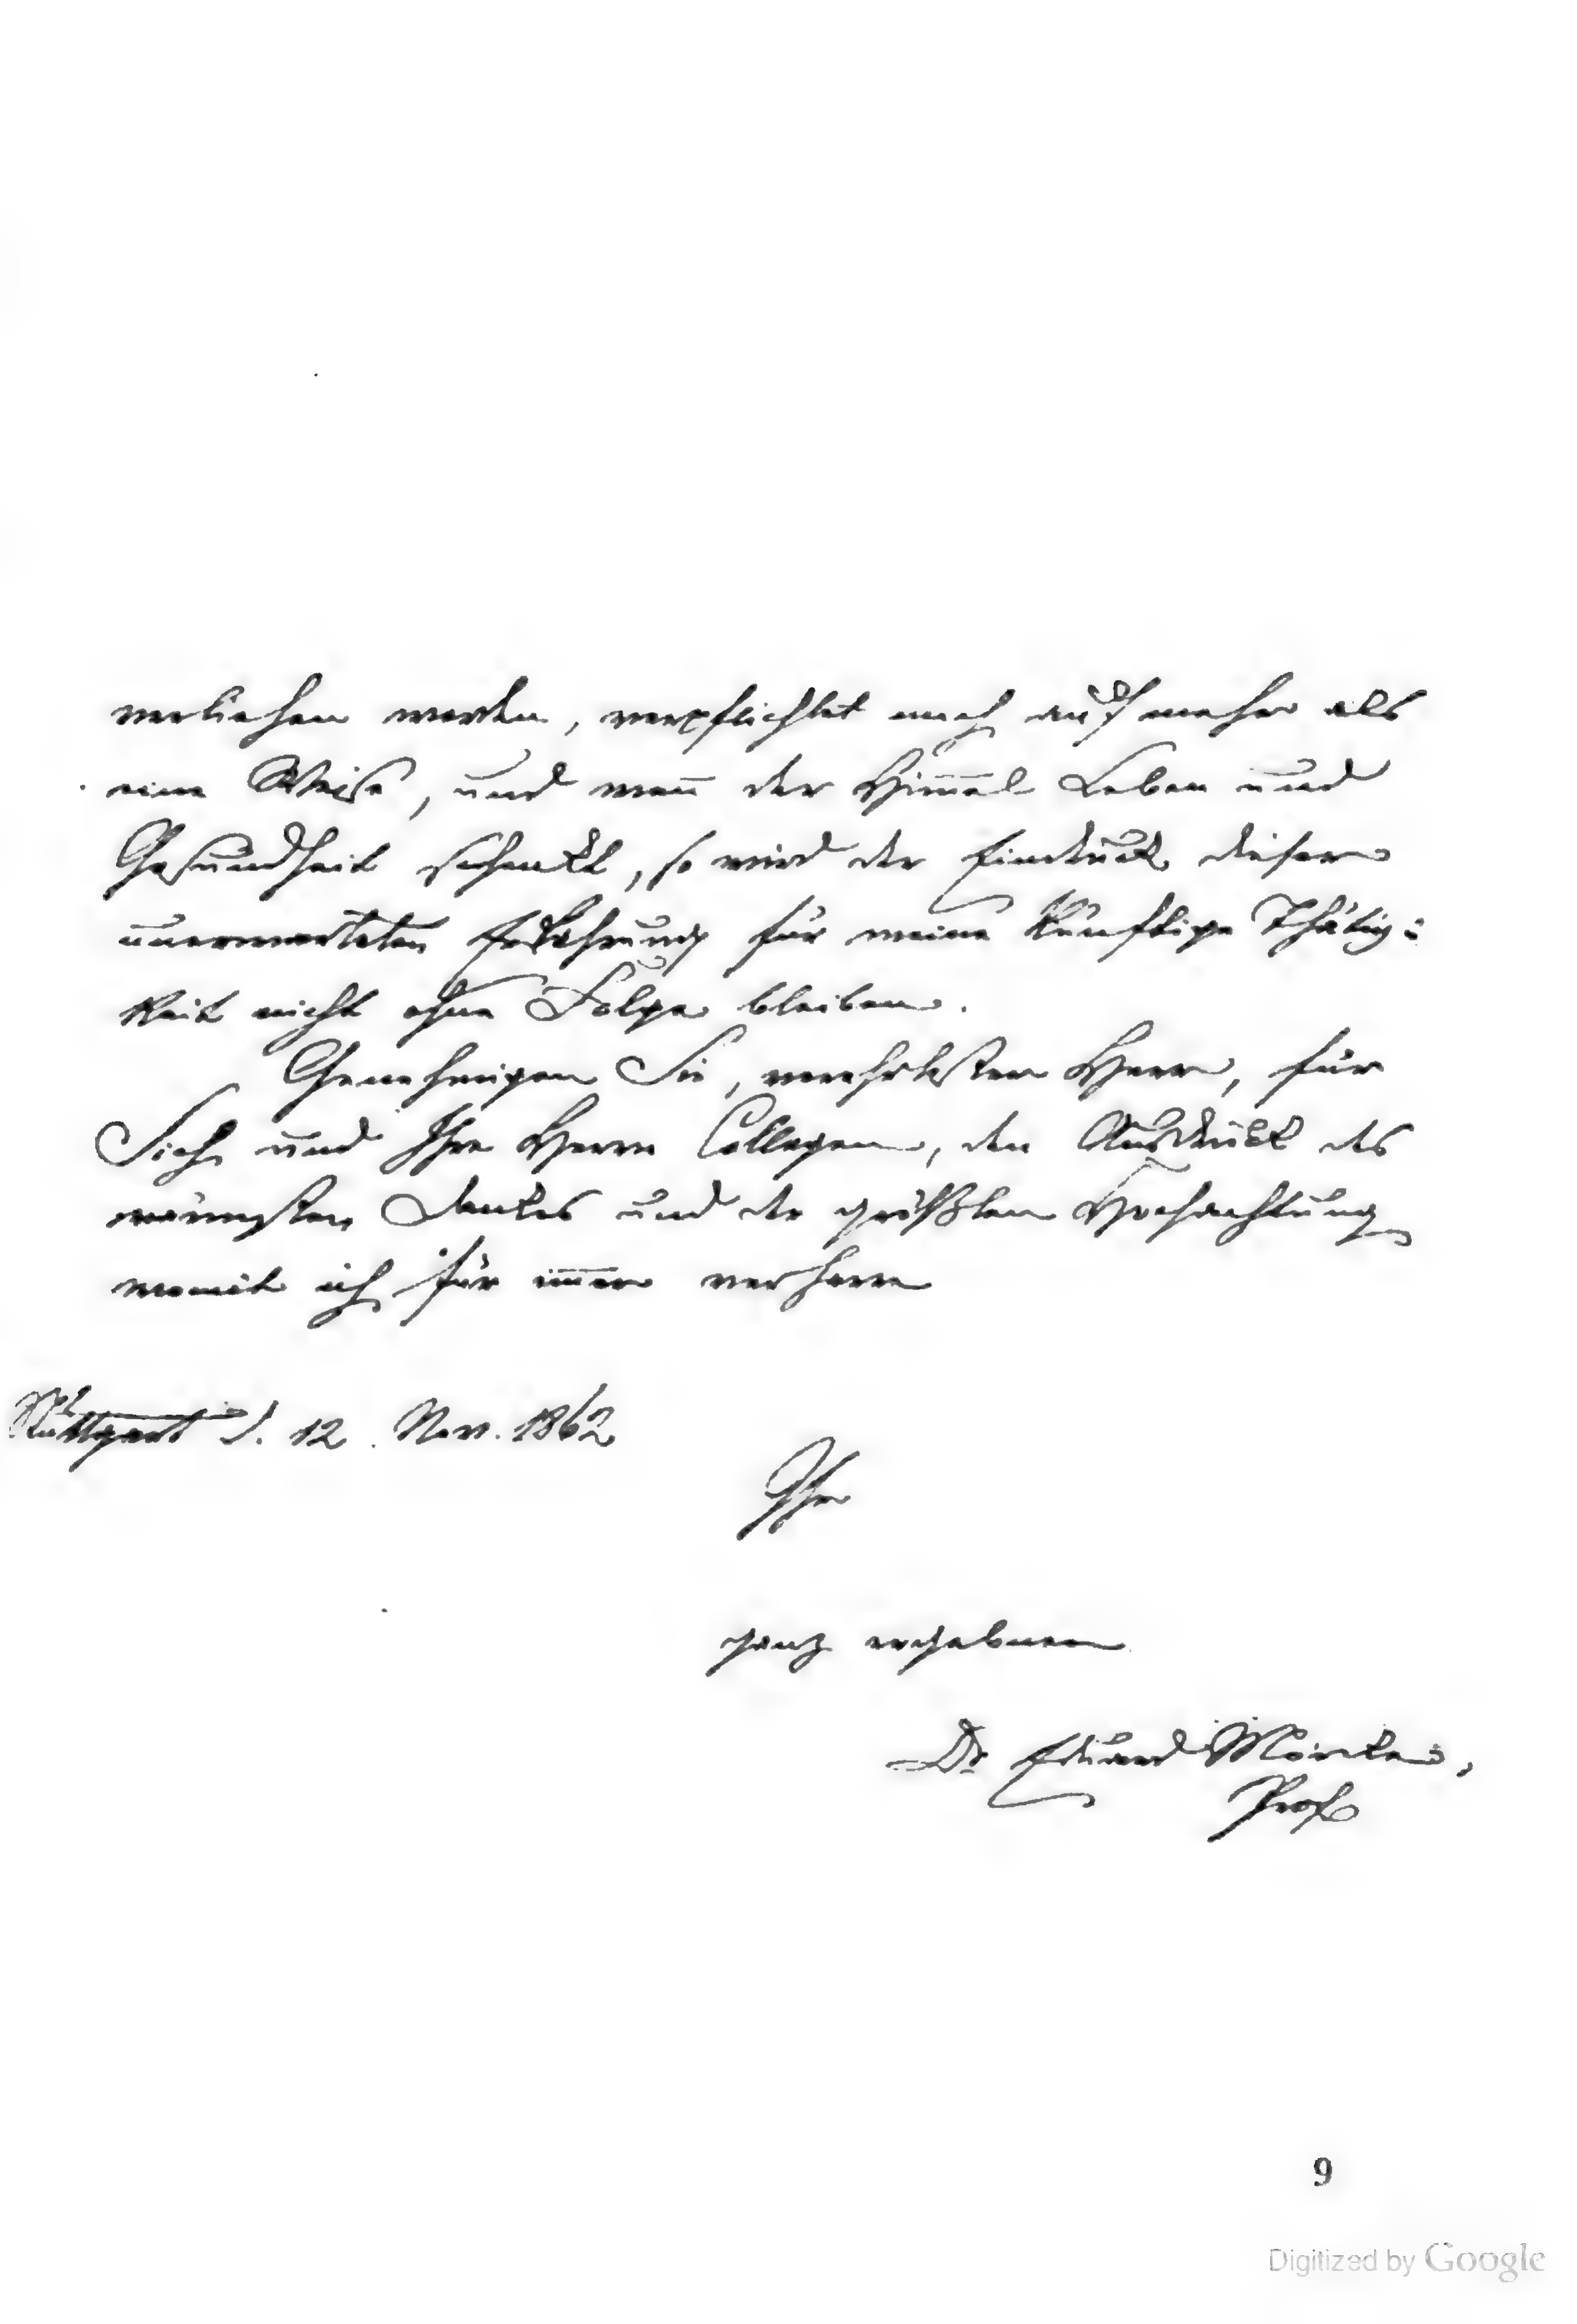 verliehen worden, verpflichtet mich auf mehr als
eine Weise, und wen̄ der Him̄el Leben und
Gesundheit schenkt, so wird der Eindruck dieser
unerwarteten Erfahrung für meine künftige Thätig=
keit nicht ohne Folge bleiben.
Genehmigen Sie, verehrtester Herr, für
Sich und Ihre Herrn Collegen, den Ausdruck des
wärmsten Dankes und der größten Hochachtung
womit ich für im̄er verharre
Stuttgart d. 12. Nov. 1862
Ihr
ganz ergebener
Dr Eduard Mörike,
Prof
9
Digitized by Google